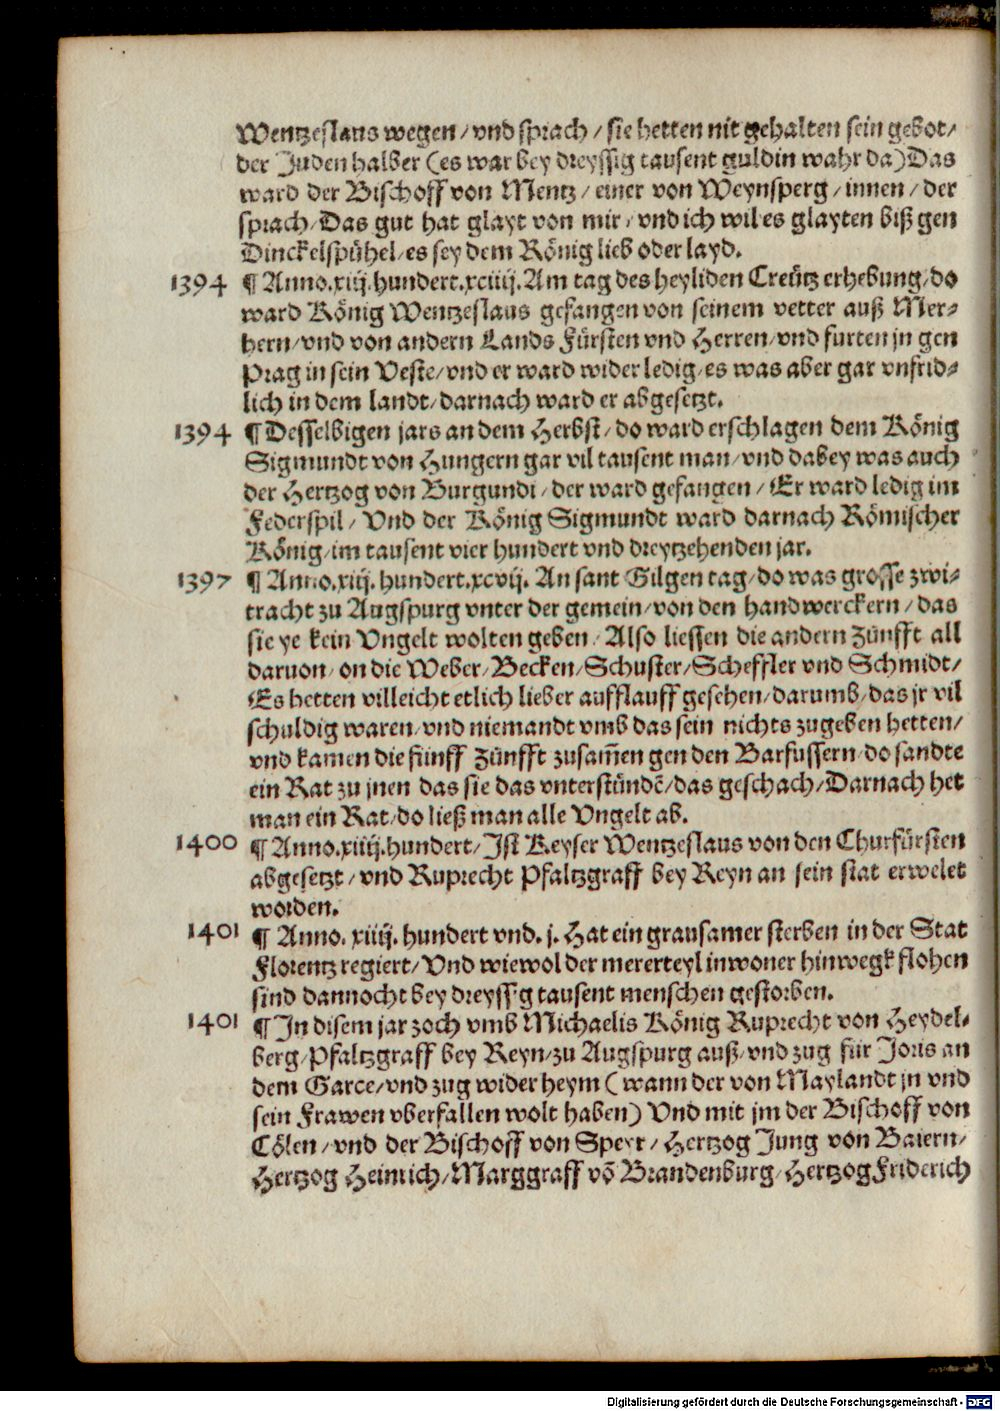 Wentzeslaus wegen / vnd sprach / sie hetten nit gehalten sein gebot /
der Juden halber (es war bey dreyssig tausent guldin wahr da) Das
ward der Bischoff von Mentz / einer von Weynsperg / innen / der
sprach / Das gut hat glayt von mir / vnd ich wil es glayten biß gen
Dinckelspühel / es sey dem König lieb oder layd.
1394 ¶ Anno.xiij.hundert.xciiij. Am tag des heyliden Creütz erhebung / do
ward König Wentzeslaus gefangen von seinem vetter auß Mer⸗
hern / vnd von andern Lands Fürsten vnd Herren / vnd furten jn gen
Prag in sein Veste / vnd er ward wider ledig / es was aber gar vnfrid⸗
lich in dem landt / darnach ward er abgesetzt.
1394 ¶ Desselbigen jars an dem Herbst / do ward erschlagen dem König
Sigmundt von Hungern gar vil tausent man / vnd dabey was auch
der Hertzog von Burgundi / der ward gefangen / Er ward ledig im
Federspil / Vnd der König Sigmundt ward darnach Römischer
König / im tausent vier hundert vnd dreytzehenden jar.
1397 ¶ Anno.xiij. hundert.xcvij. An sant Gilgen tag / do was grosse zwi⸗
tracht zu Augspurg vnter der gemein / von den handwerckern / das
sie ye kein Vngelt wolten geben / Also liessen die andern Zünfft all
daruon / on die Weber / Becken / Schuster / Scheffler vnd Schmidt /
Es hetten villeicht etlich lieber aufflauff gesehen / darumb / das jr vil
schuldig waren / vnd niemandt vmb das sein nichts zugeben hetten /
vnd kamen die fünff Zünfft zusam̃en gen den Barfussern / do sandte
ein Rat zu jnen das sie das vnterstündẽ / das geschach / Darnach het
man ein Rat / do ließ man alle Vngelt ab.
1400 ¶ Anno.xiiij.hundert / Ist Keyser Wentzeslaus von den Churfürsten
abgesetzt / vnd Ruprecht Pfaltzgraff bey Reyn an sein stat erwelet
worden.
1401 ¶ Anno. xiiij. hundert vnd. j. Hat ein grausamer sterben in der Stat
Florentz regiert / Vnd wiewol der mererteyl inwoner hinwegk flohen
sind dannocht bey dreyssig tausent menschen gestorben.
1401 ¶ In disem jar zoch vmb Michaelis König Ruprecht von Heydel⸗
berg / Pfaltzgraff bey Reyn / zu Augspurg auß / vnd zug für Joris an
dem Garce / vnd zug wider heym (wann der von Maylandt jn vnd
sein Frawen vberfallen wolt haben) Vnd mit jm der Bischoff von
Cölen / vnd der Bischoff von Speyr / Hertzog Jung von Baiern /
Hertzog Heinrich / Marggraff võ Brandenburg / Hertzog Friderich
Digitalisierung gefördert durch die Deutsche Forschungsgemeinschaft - DFG